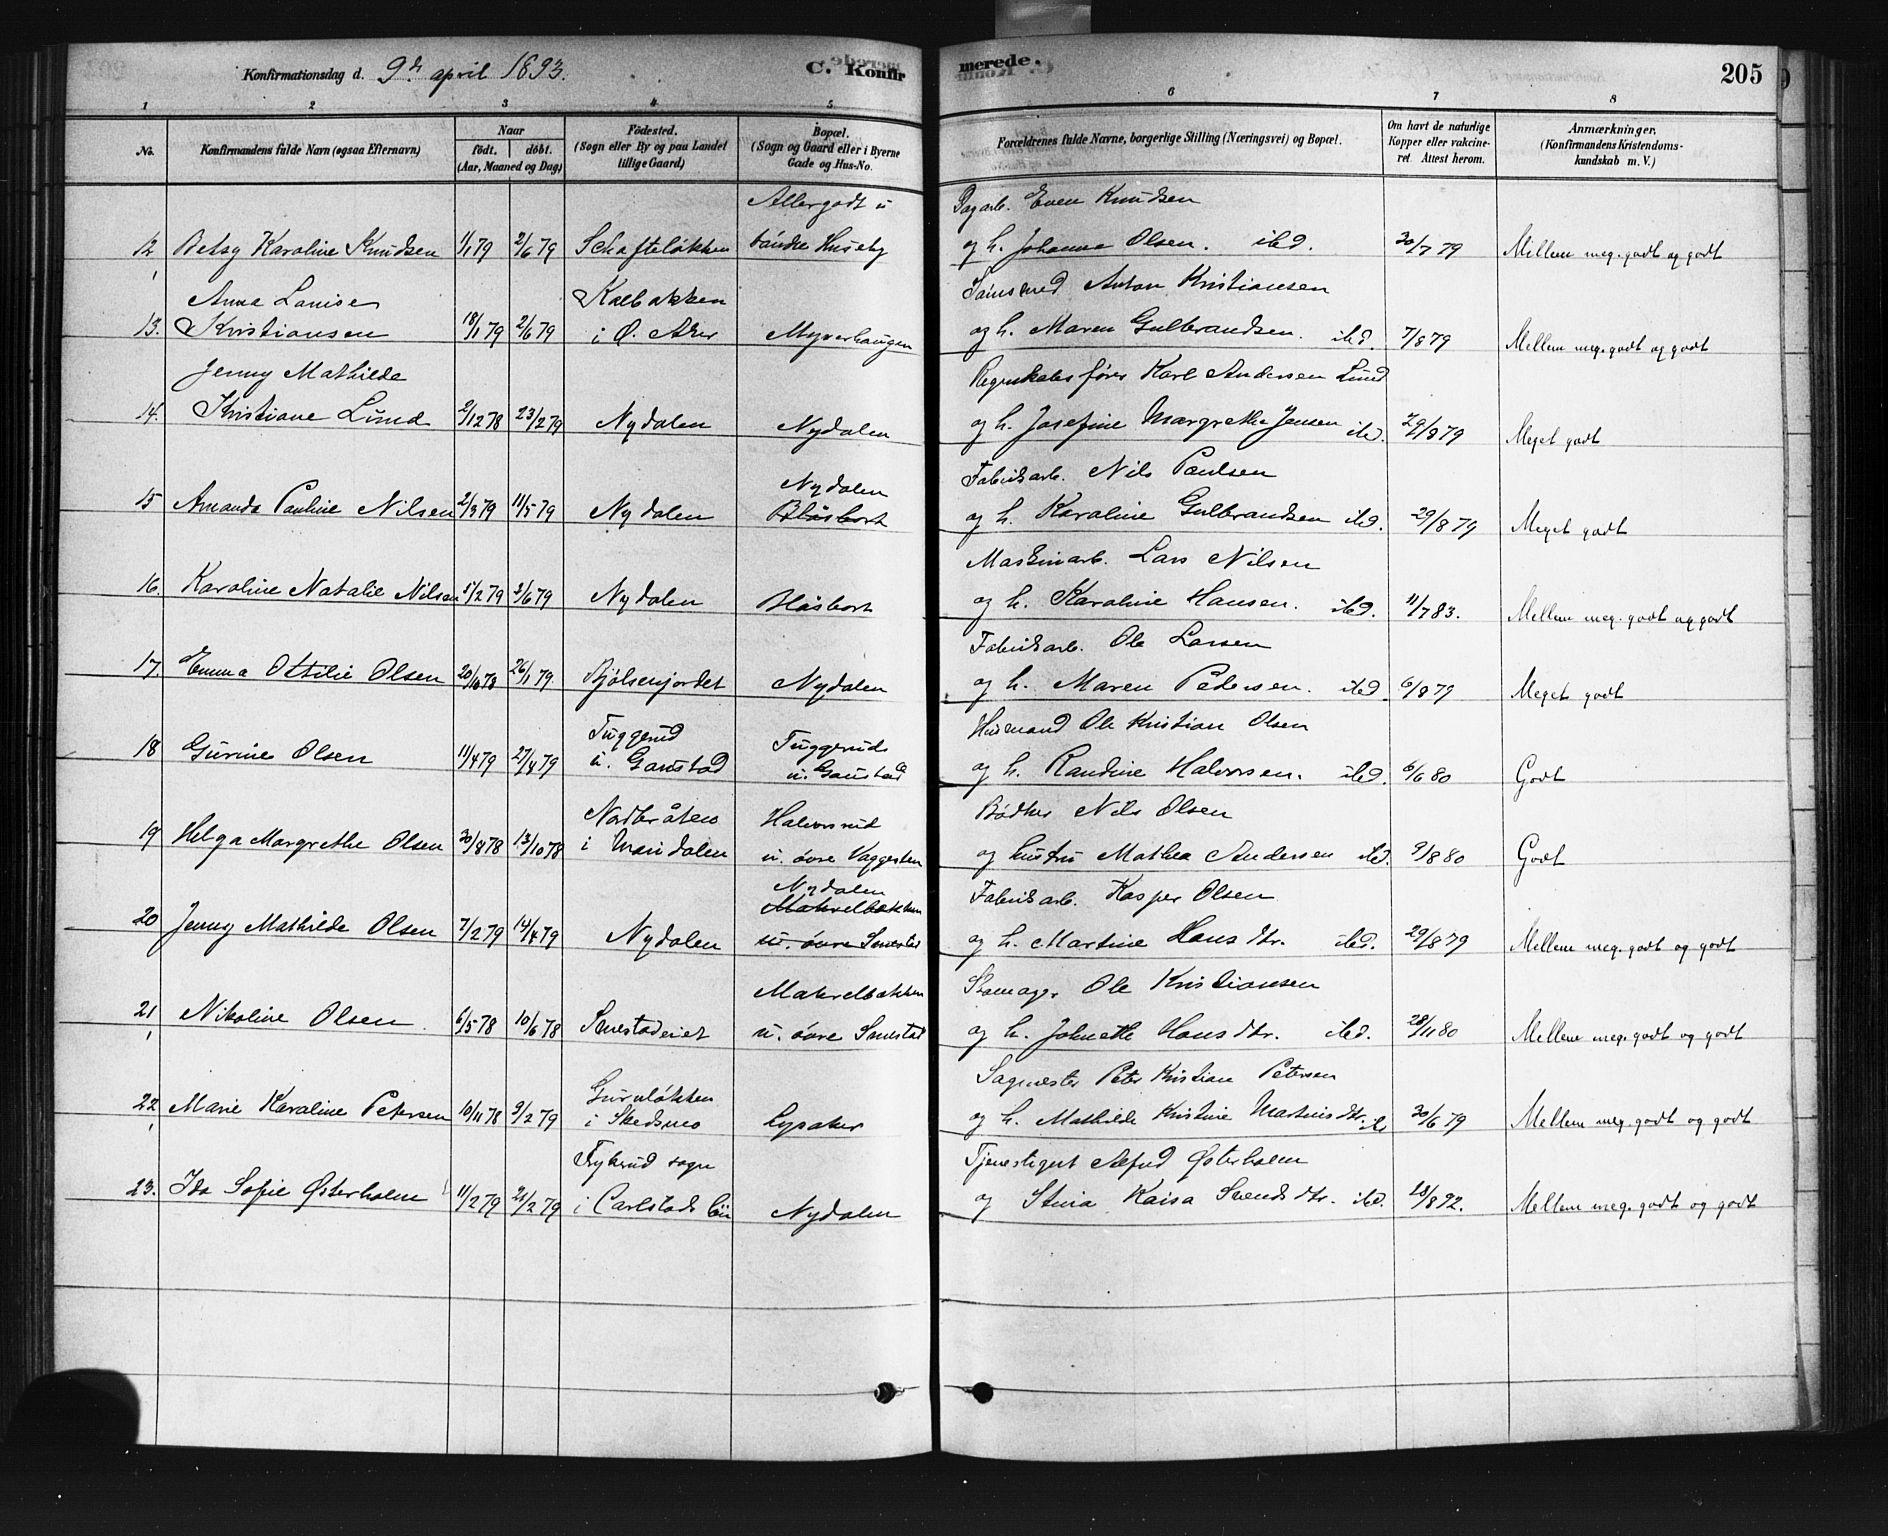 Konfirmationsdag d. 9de april 1893.
C. Konfir
merede.
205
1 2 3 4 5 6 7 8
No.
Konfirmandens fulde Navn (ogsaa Efternavn)
Naar
født. døbt.
(Aar, Maaned og Dag)
Fødested.
(Sogn eller By og paa Landet
tillige Gaard)
Bopæl.
(Sogn og Gaard eller i Byerne
Gade og Hus-No.
Forældrenes fulde Navne, borgerlige Stilling (Næringsvei) og Bopæl.
Om havt de naturlige
Kopper eller vakcine-
ret. Attest herom.
Anmærkninger.
(Konfirmandens Kristendoms-
kundskab m. V.)
Allergodt u Dagarb. Even Knudsen
12 Betsy Karoline Knudsen 1/1 79 2/6 79 Schafteløkken søndre Huseby og h. Johanna Olsen. ibd. 30/7 79 Mellem meg. godt og godt
Anna Louise Kalbakken Anton Kristiansen
13. Kristiansen 18/1 79 2/6 79 i Ø. Aker Myrerhaugen og h. Maren Gulbrandsen. ibd. 7/8 79 Mellem meg. godt og godt
Jenny Mathilde Regnskabsfører Karl Andersen Lund
14. Kristiane Lund 2/12 78 23/2 79 Nydalen Nydalen og h. Josefine Margrethe Jensen ibd. 29/8 79 Meget godt
Nydalen Fabrikarb. Nils Paulsen
15 Amanda Pauline Nilsen 2/3 79 11/5 79 Nydalen Blåsbort og h. Karoline Gulbrandsen ibd. 29/8 79 Meget godt
Maskinarb. Lars Nilsen
16. Karoline Natalie Nilsen 5/2 79 2/6 79 Nydalen Blåsbort og h. Karoline Hansen. ibd. 11/7 83. Mellem meg. godt og godt
Fabrikarb. Ole Larsen
17. Emma Ottilie Olsen 20/10 78 26/1 79 Bjølsenjordet Nydalen og h. Maren Pedersen. ibd 6/8 79 Meget godt
Tuggerud Tuggerud Husmand Ole Kristian Olsen
18 Gurine Olsen 11/4 79 27/4 79 u. Gaustad u. Gaustad og h. Randine Halvorsen. ibd. 6/6 80 Godt
Nordbråten Halvorsrud Bødker Nils Olsen
19 Helga Margrethe Olsen 30/8 78 13/10 78 i Maridalen u. øvre Vaggesten og hustru Mathea Andersen ibd. 9/8 80 Godt
Nydalen
Makrelbækken Fabrikarb. Kasper Olsen
20 Jenny Mathilde Olsen 7/2 79 14/4 79 Nydalen u. øvre Smestad og h. Martine Hansdtr. ibd. 29/8 79 Mellem meg. godt og godt
Makrelbækken Skomager Ole Kristiansen
21 Nikoline Olsen 6/5 78 10/6 78 Smestadeiet u. øvre Smestad og h. Johnette Hansdtr. ibd. 28/11 80 Mellem meg. godt og godt
i Sagmester Peter Kristian Petersen
22 Marie Karoline Petersen 10/11 78 9/2 79 i Skedsmo Lysaker og h. Mathilde Kristine Martinsdtr. ib 30/6 79 Mellem meg. godt og godt
sogn Tjenestegut Alfred Østerholm
23. Ida Sofie Østerholm 11/2 79 21/2 79 i Carlstads Nydalen og Stina Kaisa Svendsdtr. ibd. 18/8 92. Mellem meg. godt og godt